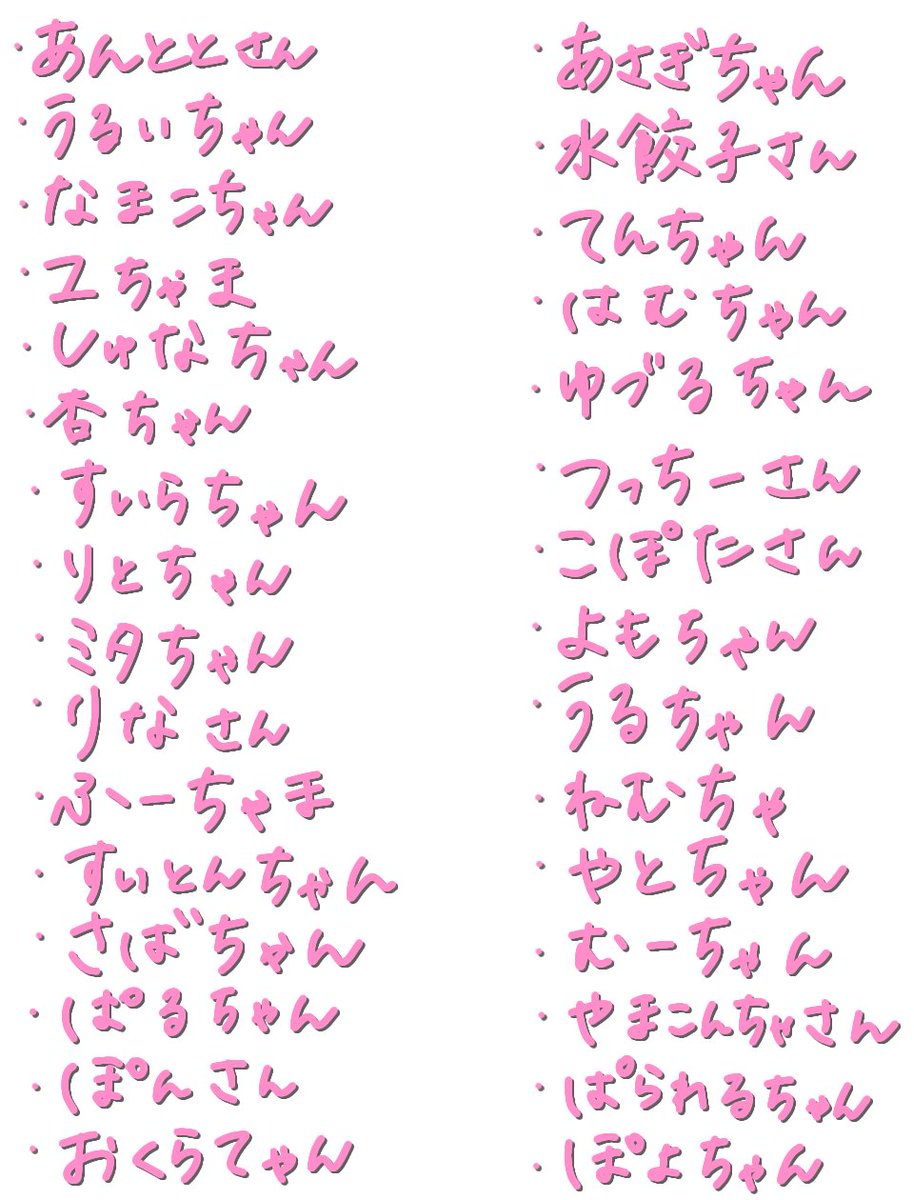 ・あんととさん
・うるぃちゃん
・なまこちゃん
・ユちゃま
・しゅなちゃん
・杏ちゃん
・すいらちゃん
・りとちゃん
・ミタちゃん
・りなさん
・ふーちゃま
・すいとんちゃん
・さばちゃん
・ぱるちゃん
・ぽんさん
・おくらてゃん
・あさぎちゃん
・水餃子さん
・てんちゃん
・はむちゃん
・ゆづるちゃん
・つっちーさん
・こぽたさん
・よもちゃん
・うるちゃん
・ねむちゃ
・やとちゃん
・むーちゃん
・やまこんちゃさん
・ぱられるちゃん
・ぽよちゃん